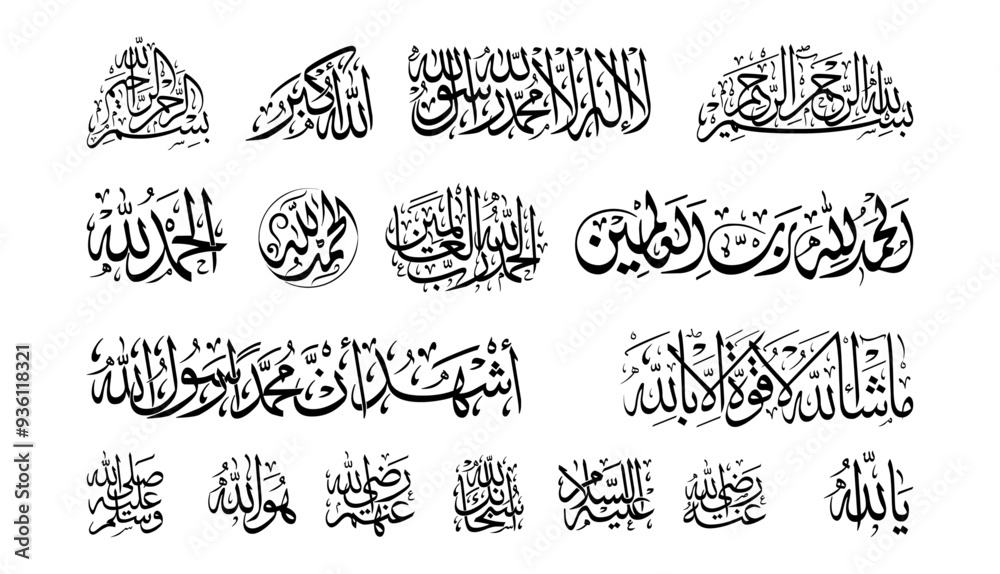 بسم الله الرحمن الرحيم
الله أكبر
لا إله إلا الله محمد رسول الله
بسم الله الرحمن الرحيم
الحمد لله
الحمد لله
الحمد لله رب العالمين
الحمد لله رب العالمين
أشهد أن محمدا رسول الله
ما شاء الله لا قوة إلا بالله
صلى الله عليه وسلم
هو الله
رضي الله عنهم
سبحانك الله
عليه السلام
رضي الله عنه
يا الله
Adobe Stock | #936118321